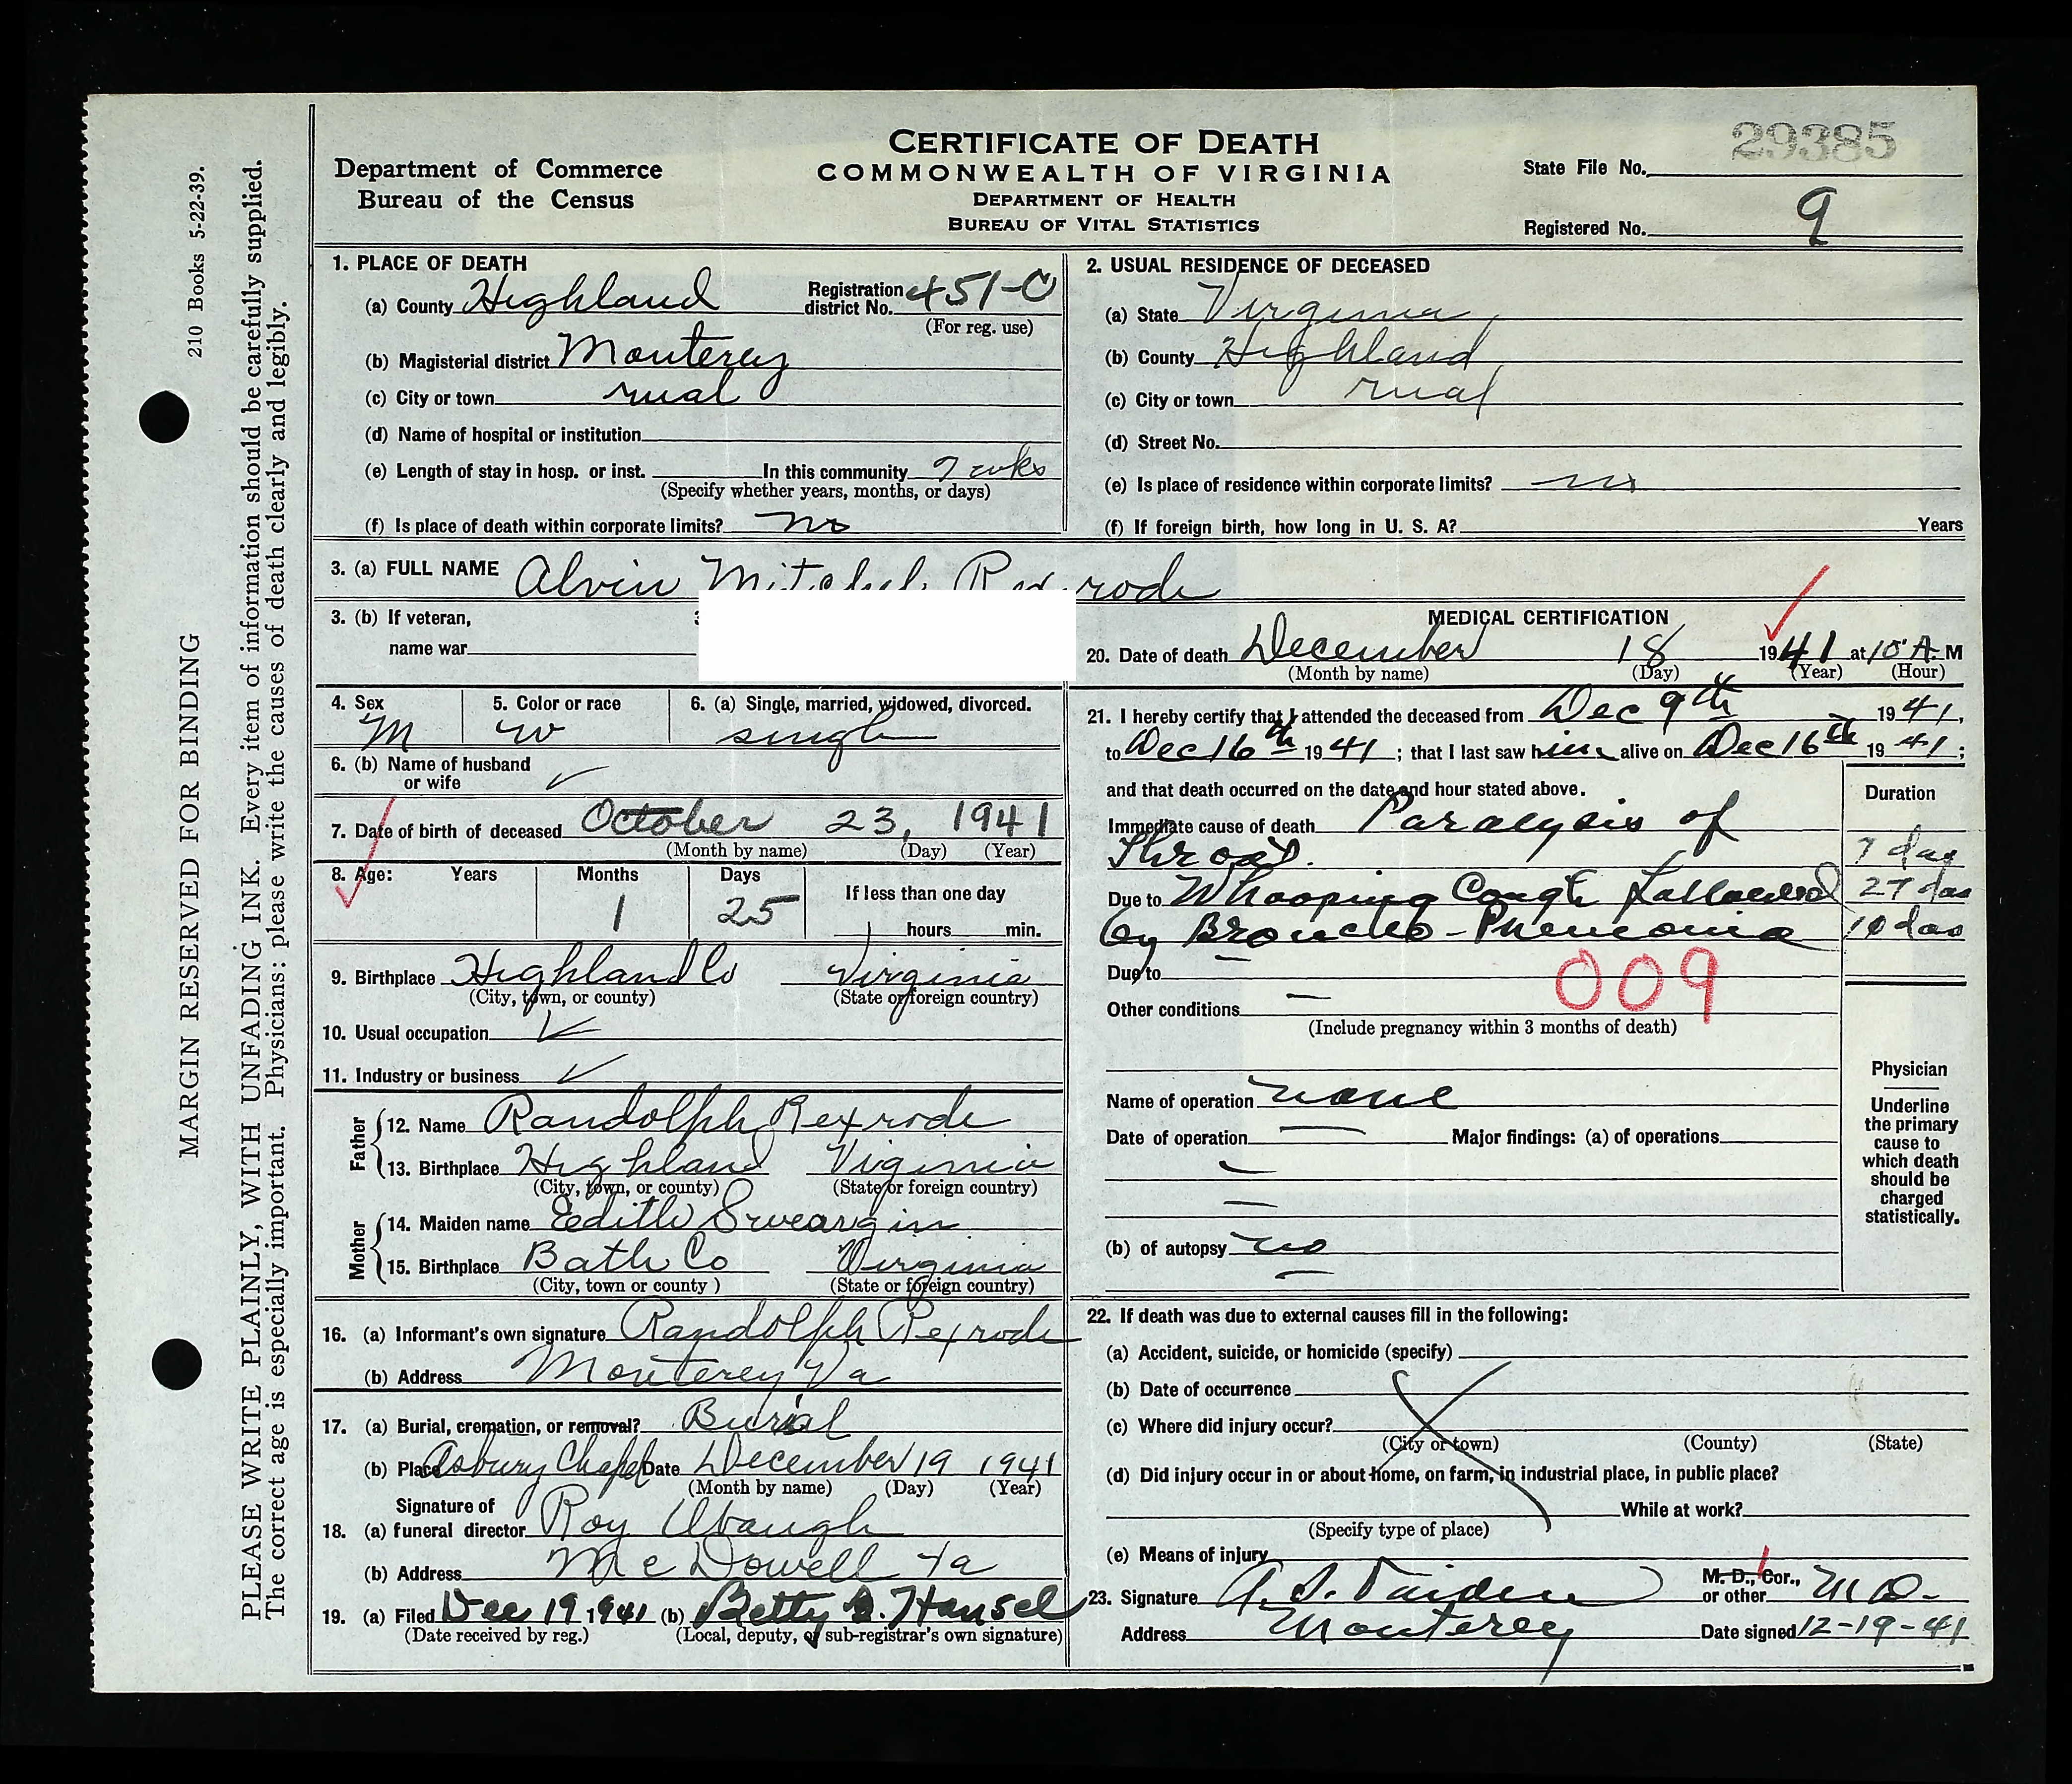 210 Books 5-22-39.
MARGIN RESERVED FOR BINDING
PLEASE WRITE PLAINLY, WITH UNFADING INK. Every item of information should be carefully supplied.
The correct age is especially important. Physicians: please write the causes of death clearly and legibly.
Department of Commerce
Bureau of the Census
CERTIFICATE OF DEATH
COMMONWEALTH OF VIRGINIA
DEPARTMENT OF HEALTH
BUREAU OF VITAL STATISTICS
29385
State File No.
Registered No. 9
1. PLACE OF DEATH
(a) County Highland Registration district No. 451-C
(For reg. use)
(b) Magisterial district Monterey
(c) City or town rural
(d) Name of hospital or institution
(e) Length of stay in hosp. or inst. In this community 7 wks
(Specify whether years, months, or days)
(f) Is place of death within corporate limits? no
2. USUAL RESIDENCE OF DECEASED
(a) State Virginia
(b) County Highland
(c) City or town rural
(d) Street No.
(e) Is place of residence within corporate limits? no
(f) If foreign birth, how long in U. S. A? Years
3. (a) FULL NAME Alvin Mitchel Rexrode
3. (b) If veteran,
name war
4. Sex M
5. Color or race W
6. (a) Single, married, widowed, divorced. single
6. (b) Name of husband
or wife
7. Date of birth of deceased October 23, 1941
(Month by name) (Day) (Year)
8. Age: Years Months Days If less than one day
1 25 hours min.
9. Birthplace Highland Co Virginia
(City, town, or county) (State or foreign country)
10. Usual occupation
11. Industry or business
Father
12. Name Randolph Rexrode
13. Birthplace Highland Virginia
(City, town, or county) (State or foreign country)
Mother
14. Maiden name Edith Swearngin
15. Birthplace Bath Co Virginia
(City, town or county ) (State or foreign country)
16. (a) Informant's own signature Randolph Rexrode
(b) Address Monterey Va
17. (a) Burial, cremation, or removal? Burial
(b) Place Asbury Chapel Date December 19 1941
(Month by name) (Day) (Year)
Signature of
18. (a) funeral director Roy Obaugh
(b) Address McDowell Va
19. (a) Filed Dec 19 1941 (b) Betty B. Hansel
(Date received by reg.) (Local, deputy, or sub-registrar's own signature)
MEDICAL CERTIFICATION
20. Date of death December 18 1941 at 10 A. M
(Month by name) (Day) (Year) (Hour)
21. I hereby certify that I attended the deceased from Dec 9th 1941,
to Dec 16th 1941; that I last saw him alive on Dec 16th 1941;
and that death occurred on the date and hour stated above. Duration
Immediate cause of death Paralysis of
Throat. 7 das
Due to Whooping Cough followed 27 das
by Broncho-Pneumonia 10 das
Due to
009
Other conditions
(Include pregnancy within 3 months of death)
Name of operation none
Date of operation Major findings: (a) of operations
(b) of autopsy no
Physician
Underline
the primary
cause to
which death
should be
charged
statistically.
22. If death was due to external causes fill in the following:
(a) Accident, suicide, or homicide (specify)
(b) Date of occurrence
(c) Where did injury occur?
(City or town) (County) (State)
(d) Did injury occur in or about home, on farm, in industrial place, in public place?
While at work?
(Specify type of place)
(e) Means of injury
23. Signature M. D., Cor., or other M D-
Address Monterey Date signed 12-19-41